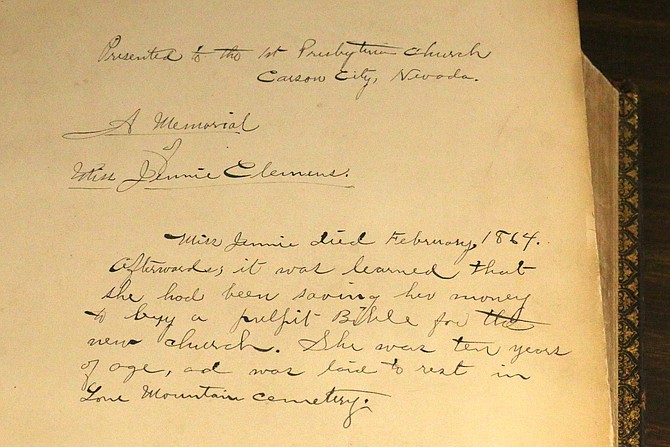 Presented to the 1st Presbyterian Church
Carson City, Nevada.
A Memorial
of
Miss Jennie Clemens.
Miss Jennie died February, 1864.
Afterwards, it was learned that
she had been saving her money
to buy a pulpit Bible for the
new church. She was ten years
of age, ad was laid to rest in
Lone Mountain cemetery.